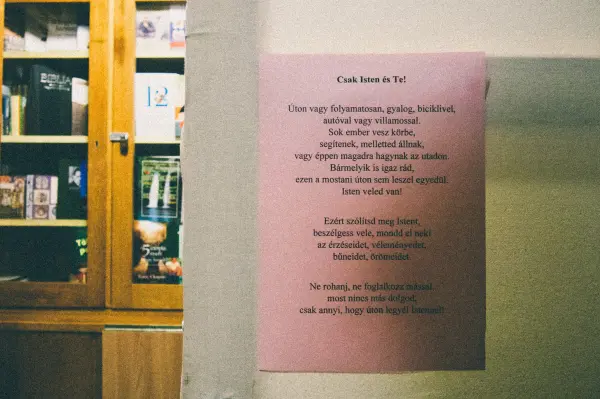 Csak Isten és Te!
Úton vagy folyamatosan, gyalog, biciklivel,
autóval vagy villamossal.
Sok ember vesz körbe,
segítenek, melletted állnak,
vagy éppen magadra hagynak az utadon.
Bármelyik is igaz rád,
ezen a mostani úton sem leszel egyedül.
Isten veled van!
Ezért szólítsd meg Istent,
beszélgess vele, mondd el neki
az érzéseidet, véleményedet,
bűneidet, örömeidet.
Ne rohanj, ne foglalkozz mással,
most nincs más dolgod,
csak annyi, hogy úton legyél Istennel!
BIBLIA
12
5